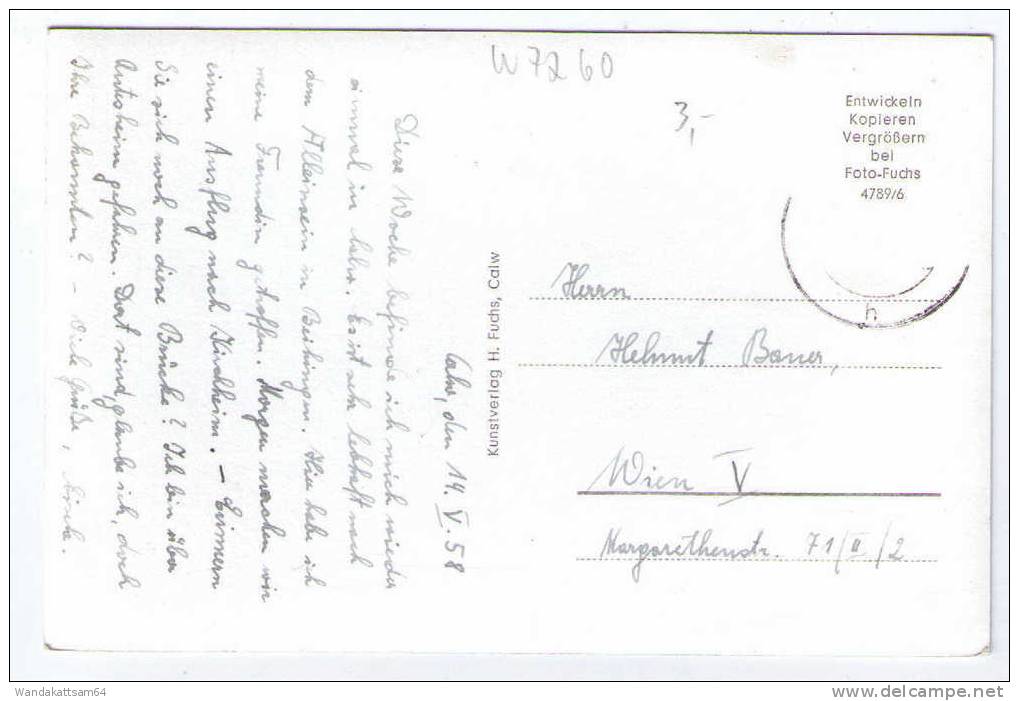 W 7260
3,-
Entwickeln
Kopieren
Vergrößern
bei
Foto-Fuchs
4789/6
h
Calw, den 14. V. 58
Diese Woche befinde ich mich wieder
einmal in Calw. Es ist sehr lebhaft nach
dem Alleinsein in Beihingen. Hier habe ich
meine Freundin getroffen. Morgen machen wir
einen Ausflug nach Kirchheim. – Erinnern
Sie sich noch an diese Brücke? Ich bin über
gefahren. Dort sind, glaube ich, doch
Ihre Bekannten? – Viele Grüße,
Kunstverlag H. Fuchs, Calw
Herrn
Helmut Bauer,
Wien V
Margarethenstr. 71/II/2
Wandakattsam64
www.delcampe.net